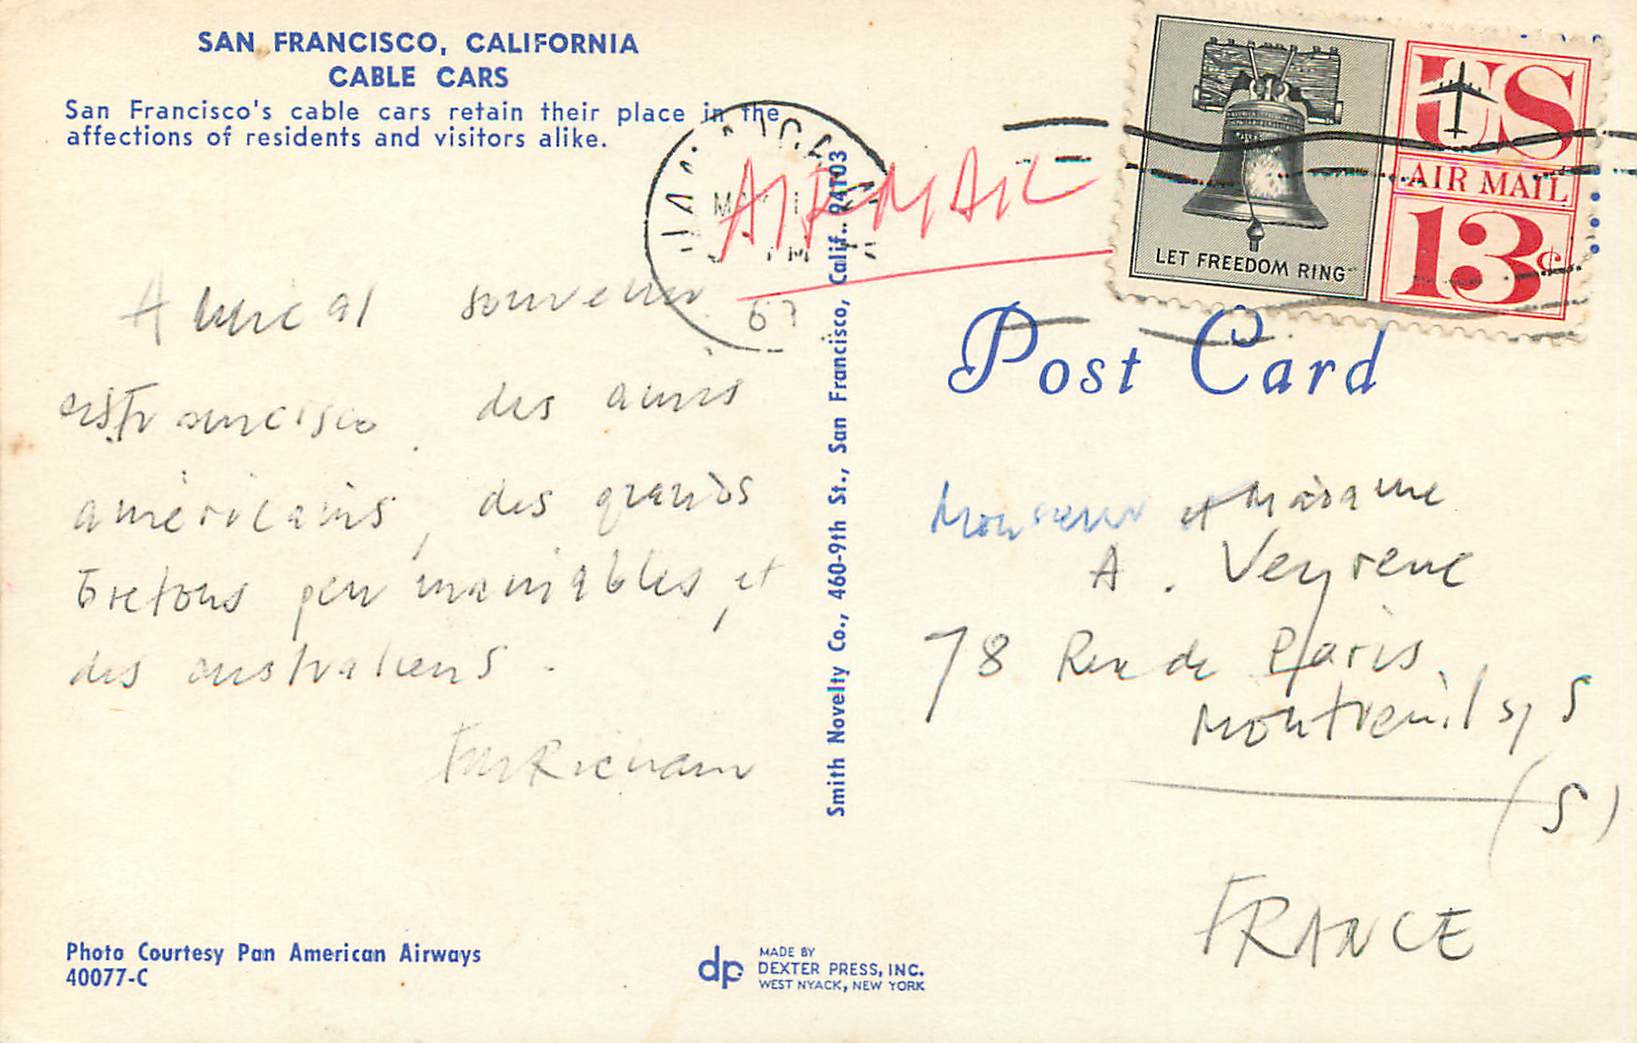 SAN FRANCISCO, CALIFORNIA
CABLE CARS
San Francisco's cable cars retain their place in the
affections of residents and visitors alike.
Amical souvenir
des amis
américains, des grands
bretons peu maniables, et
des australiens.
Photo Courtesy Pan American Airways
40077-C
Smith Novelty Co., 460-9th St., San Francisco, Calif. 94103
dp
MADE BY
DEXTER PRESS, INC.
WEST NYACK, NEW YORK
67
AIR MAIL
LET FREEDOM RING
US
AIR MAIL
13¢
Post Card
Monsieur et Madame
A. Veyrenc
78 Rue de Paris
Montreuil s/ S
(S)
FRANCE